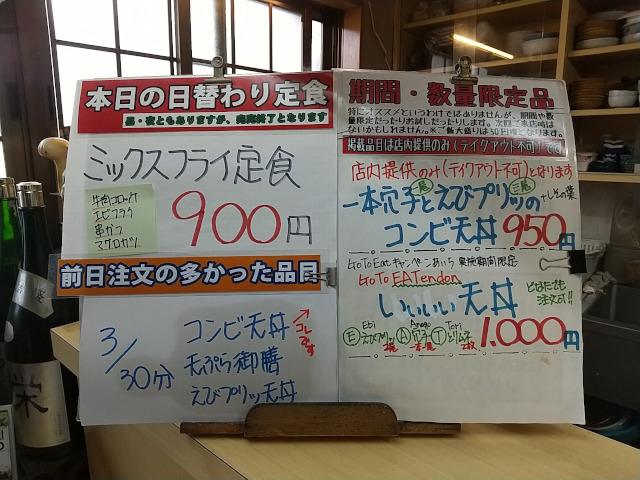 本日の日替わり定食
昼・夜ともありますが、売切終了となります
ミックスフライ定食
牛肉コロッケ
エビフライ
串カツ
マグロカツ
900円
前日注文の多かった品目
3/30分
コンビ天丼
←コレです
天ぷら御膳
えびプリッツ天丼
期間・数量限定品
特にオススメというわけではありませんが、期間や数
量限定だったりお試しだったりします。次回ご来店時は
ないかもしれません。※ご飯大盛りは50円増となります。
掲載品目は店内提供のみ(テイクアウト不可)です
店内提供のみ(テイクアウト不可)となります
一本穴子と一尾えびプリッツの三尾
+しその葉
コンビ天丼 950円
Go To Eatキャンペーンあいち 実施期間限定
Go To EATendon
いいいい天丼
どなたでも
注文可!!
Ebi Anago Tori
1.000円